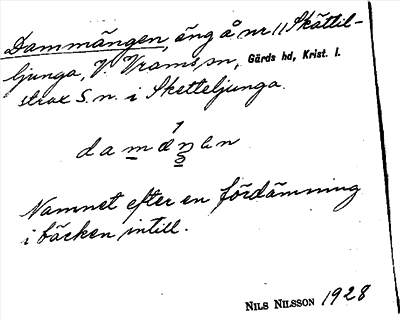 Dammängen, äng å nr 11 Skättil-
ljunga, V. Vrams sn, Gärds hd, Krist. l.
strax S. n. i Sketteljunga.
Namnet efter en fördämning
i bäcken intill.
NILS NILSSON 1928